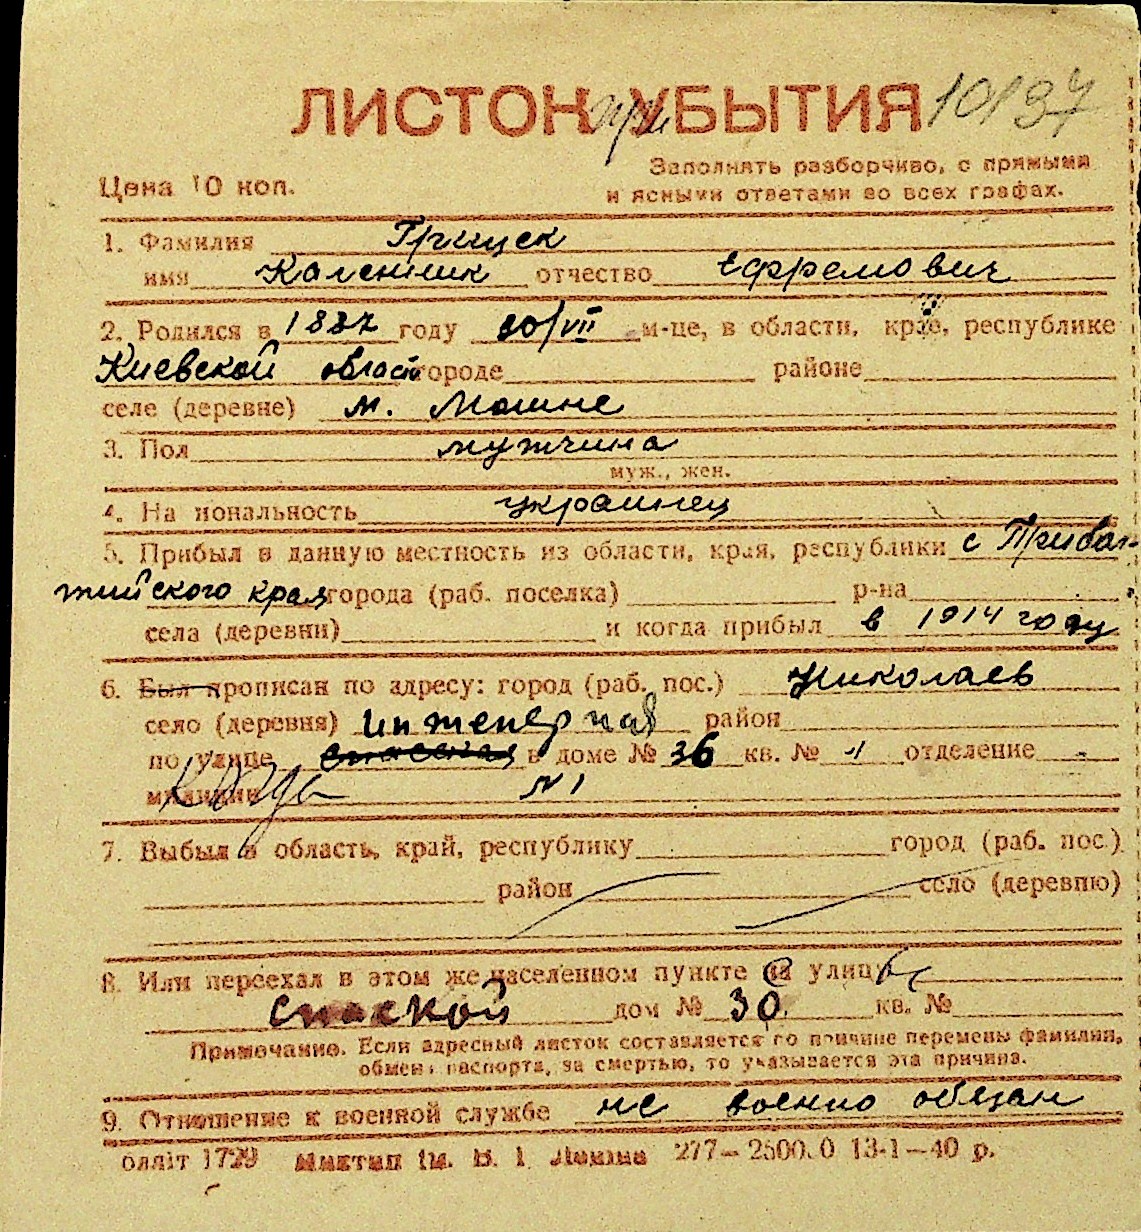 ЛИСТОК при УБЫТИЯ 10197
Цена 10 коп.
Заполнять разборчиво, с прямыми
и ясными ответами во всех графах.
1. Фамилия Грицек
имя Каленник отчество Ефремович
2. Родился в 1887 году 20/VII м-це, в области, крае, республике
Киевской област городе районе
селе (деревне) м. Мошне
3. Пол мужчина
муж., жен.
4. На иональность украинец
5. Прибыл в данную местность из области, края, республики с Прибал-
тийского края города (раб. поселка) р-на
села (деревни) и когда прибыл в 1914 году
6. Был прописан по адресу: город (раб. пос.) Николаев
село (деревня) Инженерная район
по улице Спасская в доме № 36 кв. № 1 отделение -
милиции N 1
7. Выбыл в область, край, республику город (раб. пос.)
район село (деревню)
8. Или переехал в этом же населенном пункте на улицу
Спаской дом № 30 кв. №
Примечание. Если адресный листок составляется по причине перемены фамилии,
обмена паспорта, за смертью, то указывается эта причина.
9. Отношение к военной службе не военно обязан
1729 277— 13-1—40 р.